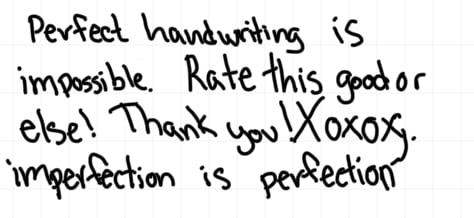 Perfect handwriting is
impossible. Rate this good or
else! Thank you! Xoxox,.
imperfection is perfection